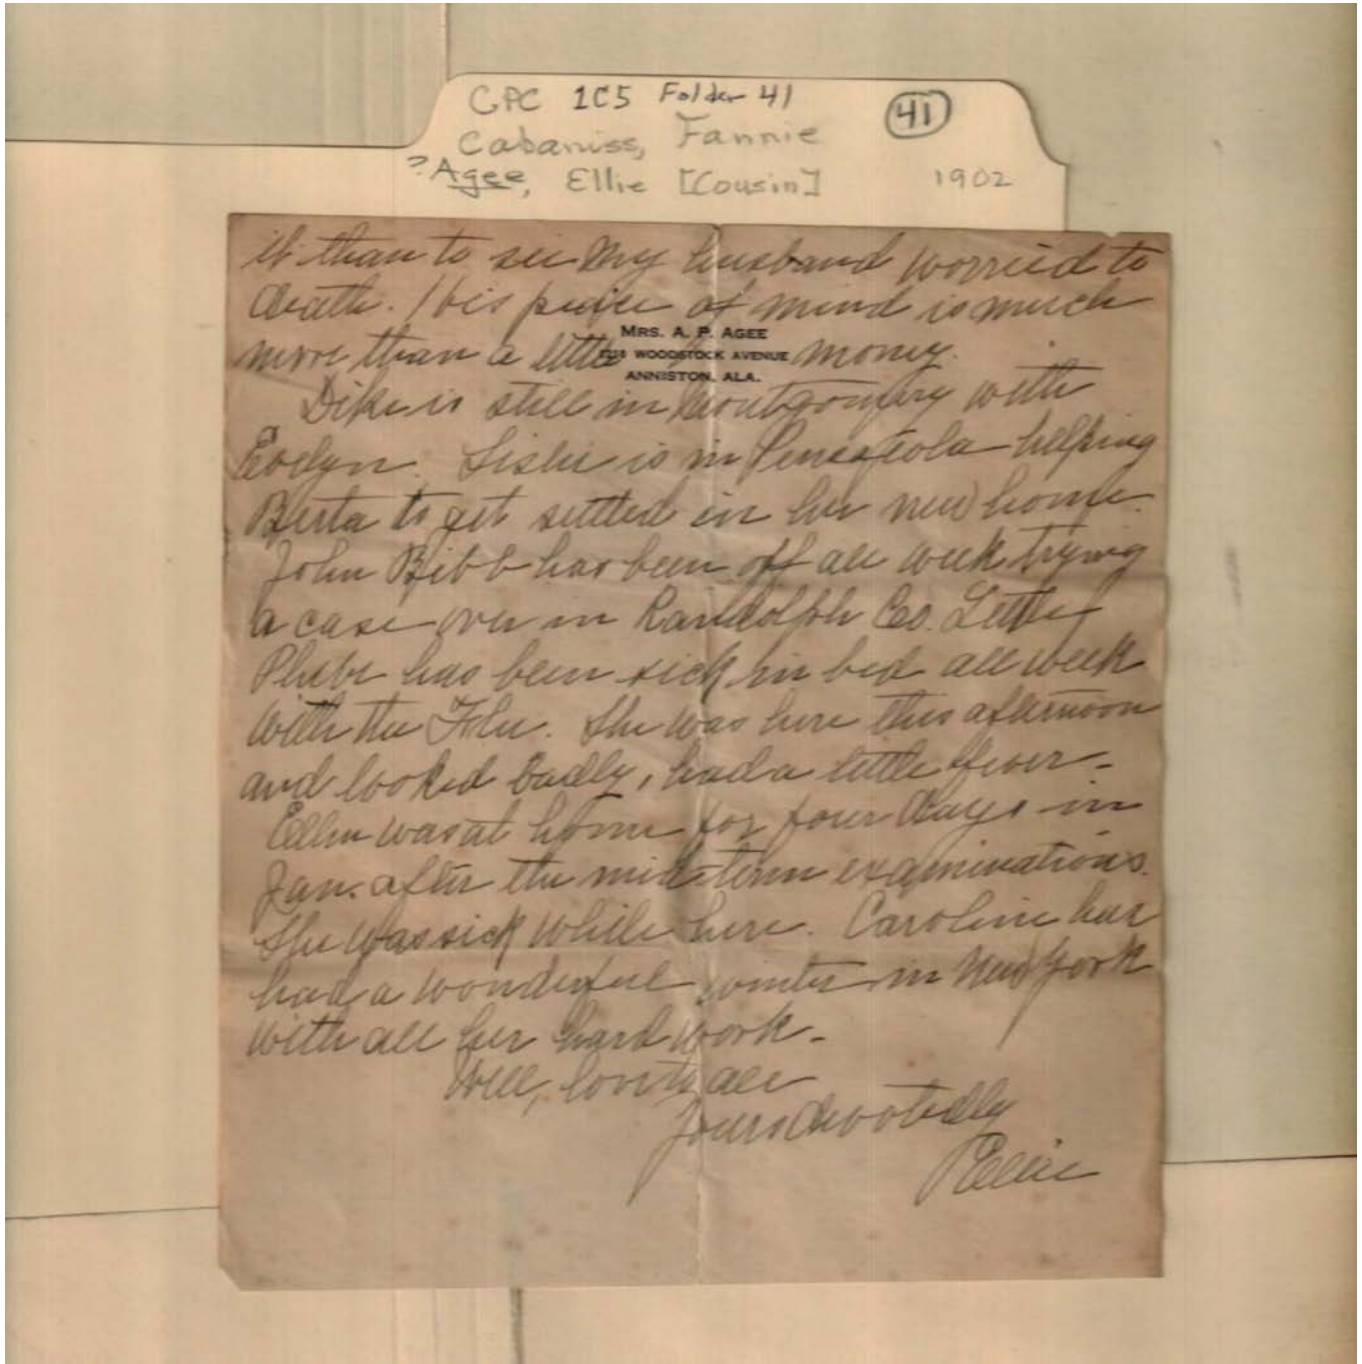 GPC 1C5 Folder 41
41
Cabaniss, Fannie
?Agee, Ellie [Cousin] 1902
it than to see my husband worried to
death. His peace of mind is much
MRS. A. P. AGEE
more than a little money.
WOODSTOCK AVENUE
ANNISTON, ALA.
is still in Montgomery with
Evelyn. is in Pensacola helping
Berta to get settled in her new home.
John Bibb has been off all week trying
a case over in Randolph Co. Little
Phebe has been sick in bed all week
with the Flu. She was here this afternoon
and looked badly, had a little fever -
Ellen was at home for four days in
Jan. after the mid-term examinations.
She was sick while here. Caroline has
had a wonderful winter in New York
with all her hard work -
Well, love to all
Yours devotedly
Ellie